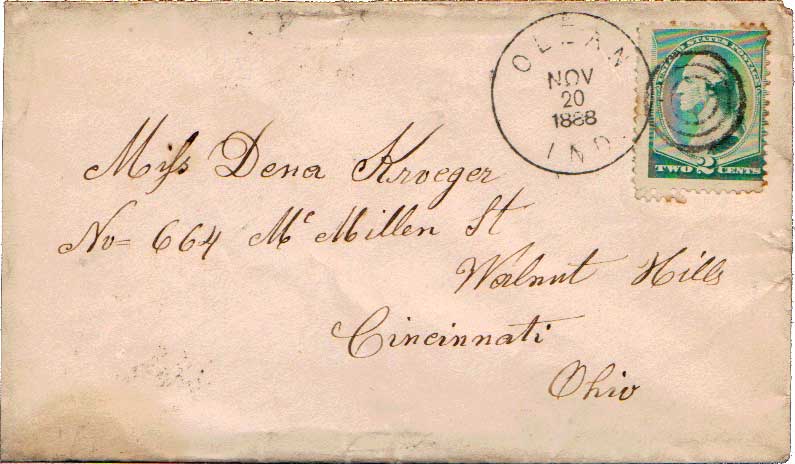 OLEAN
NOV
20
1888
IND.
UNITED STATES POSTAGE
2
TWO CENTS
Miſs Dena Kroeger
No= 664 Mc Millen St
Walnut Hills
Cincinnati
Ohio